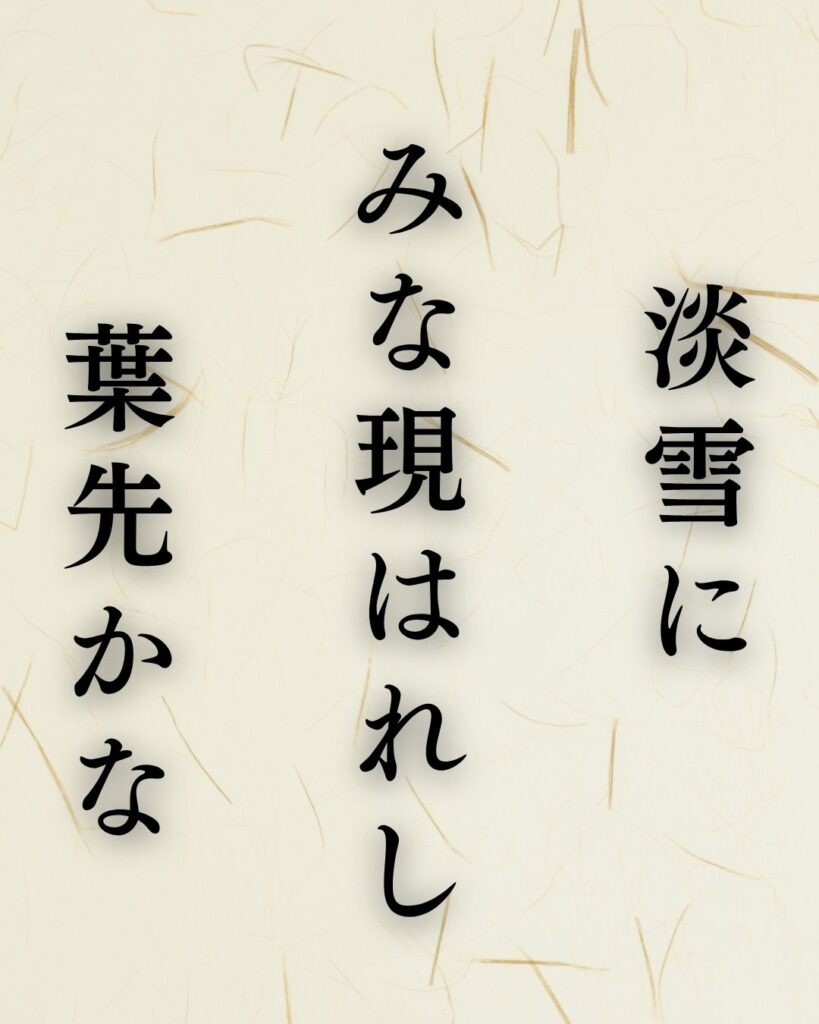 淡雪に
みな現はれし
葉先かな